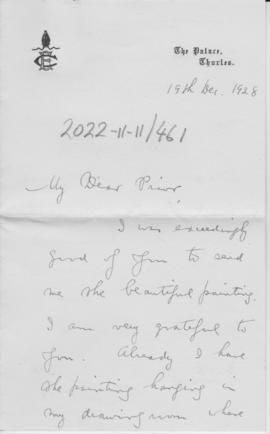 The Palace,
Thurles.
19th Dec. 1928
2022-11-11/461
My Dear Prior,
I was exceedingly
good of you to send
me the beautiful painting.
I am very grateful to
you. Already I have
the painting hanging in
my drawing room where